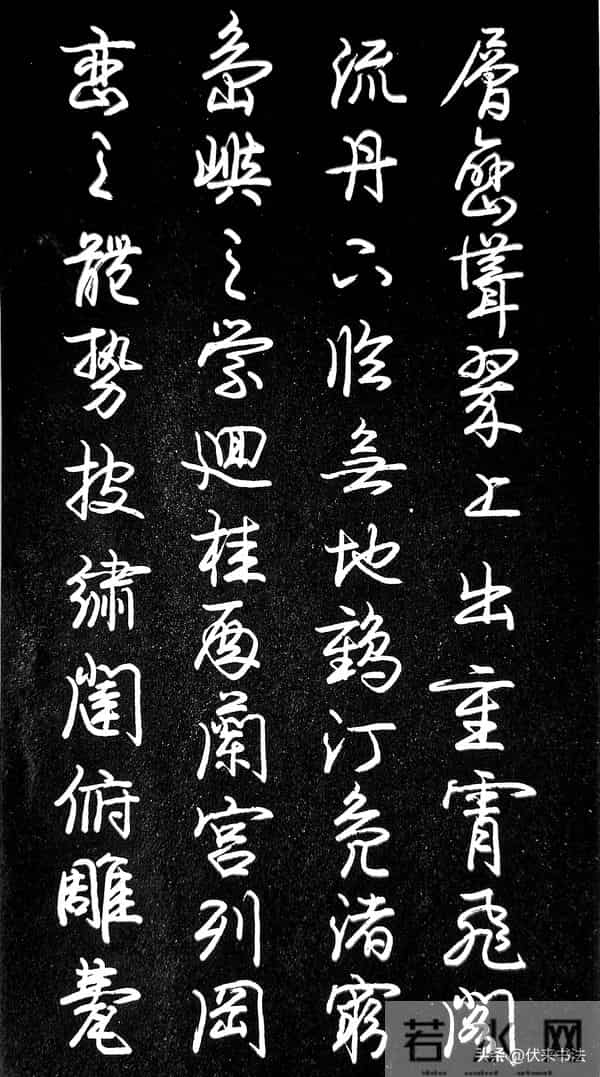 層巒聳翠上出重霄飛閣
流丹下臨無地鶴汀鳧渚窮
島嶼之縈迴桂殿蘭宮列岡
巒之體勢披繡闥俯雕甍
若水网
头条@伏来书法